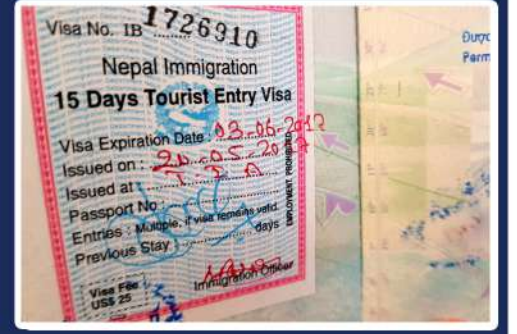 Visa No. IB 1726910
Nepal Immigration
15 Days Tourist Entry Visa
Visa Expiration Date : 03-06-2017
Issued on : 20-05-2017
Issued at : T I A
Passport No :
Entries : Multiple, if visa remains valid.
Previous Stay days
EMPLOYMENT PROHIBITED
Visa Fee
US$ 25
Immigration Officer
Được
Perm